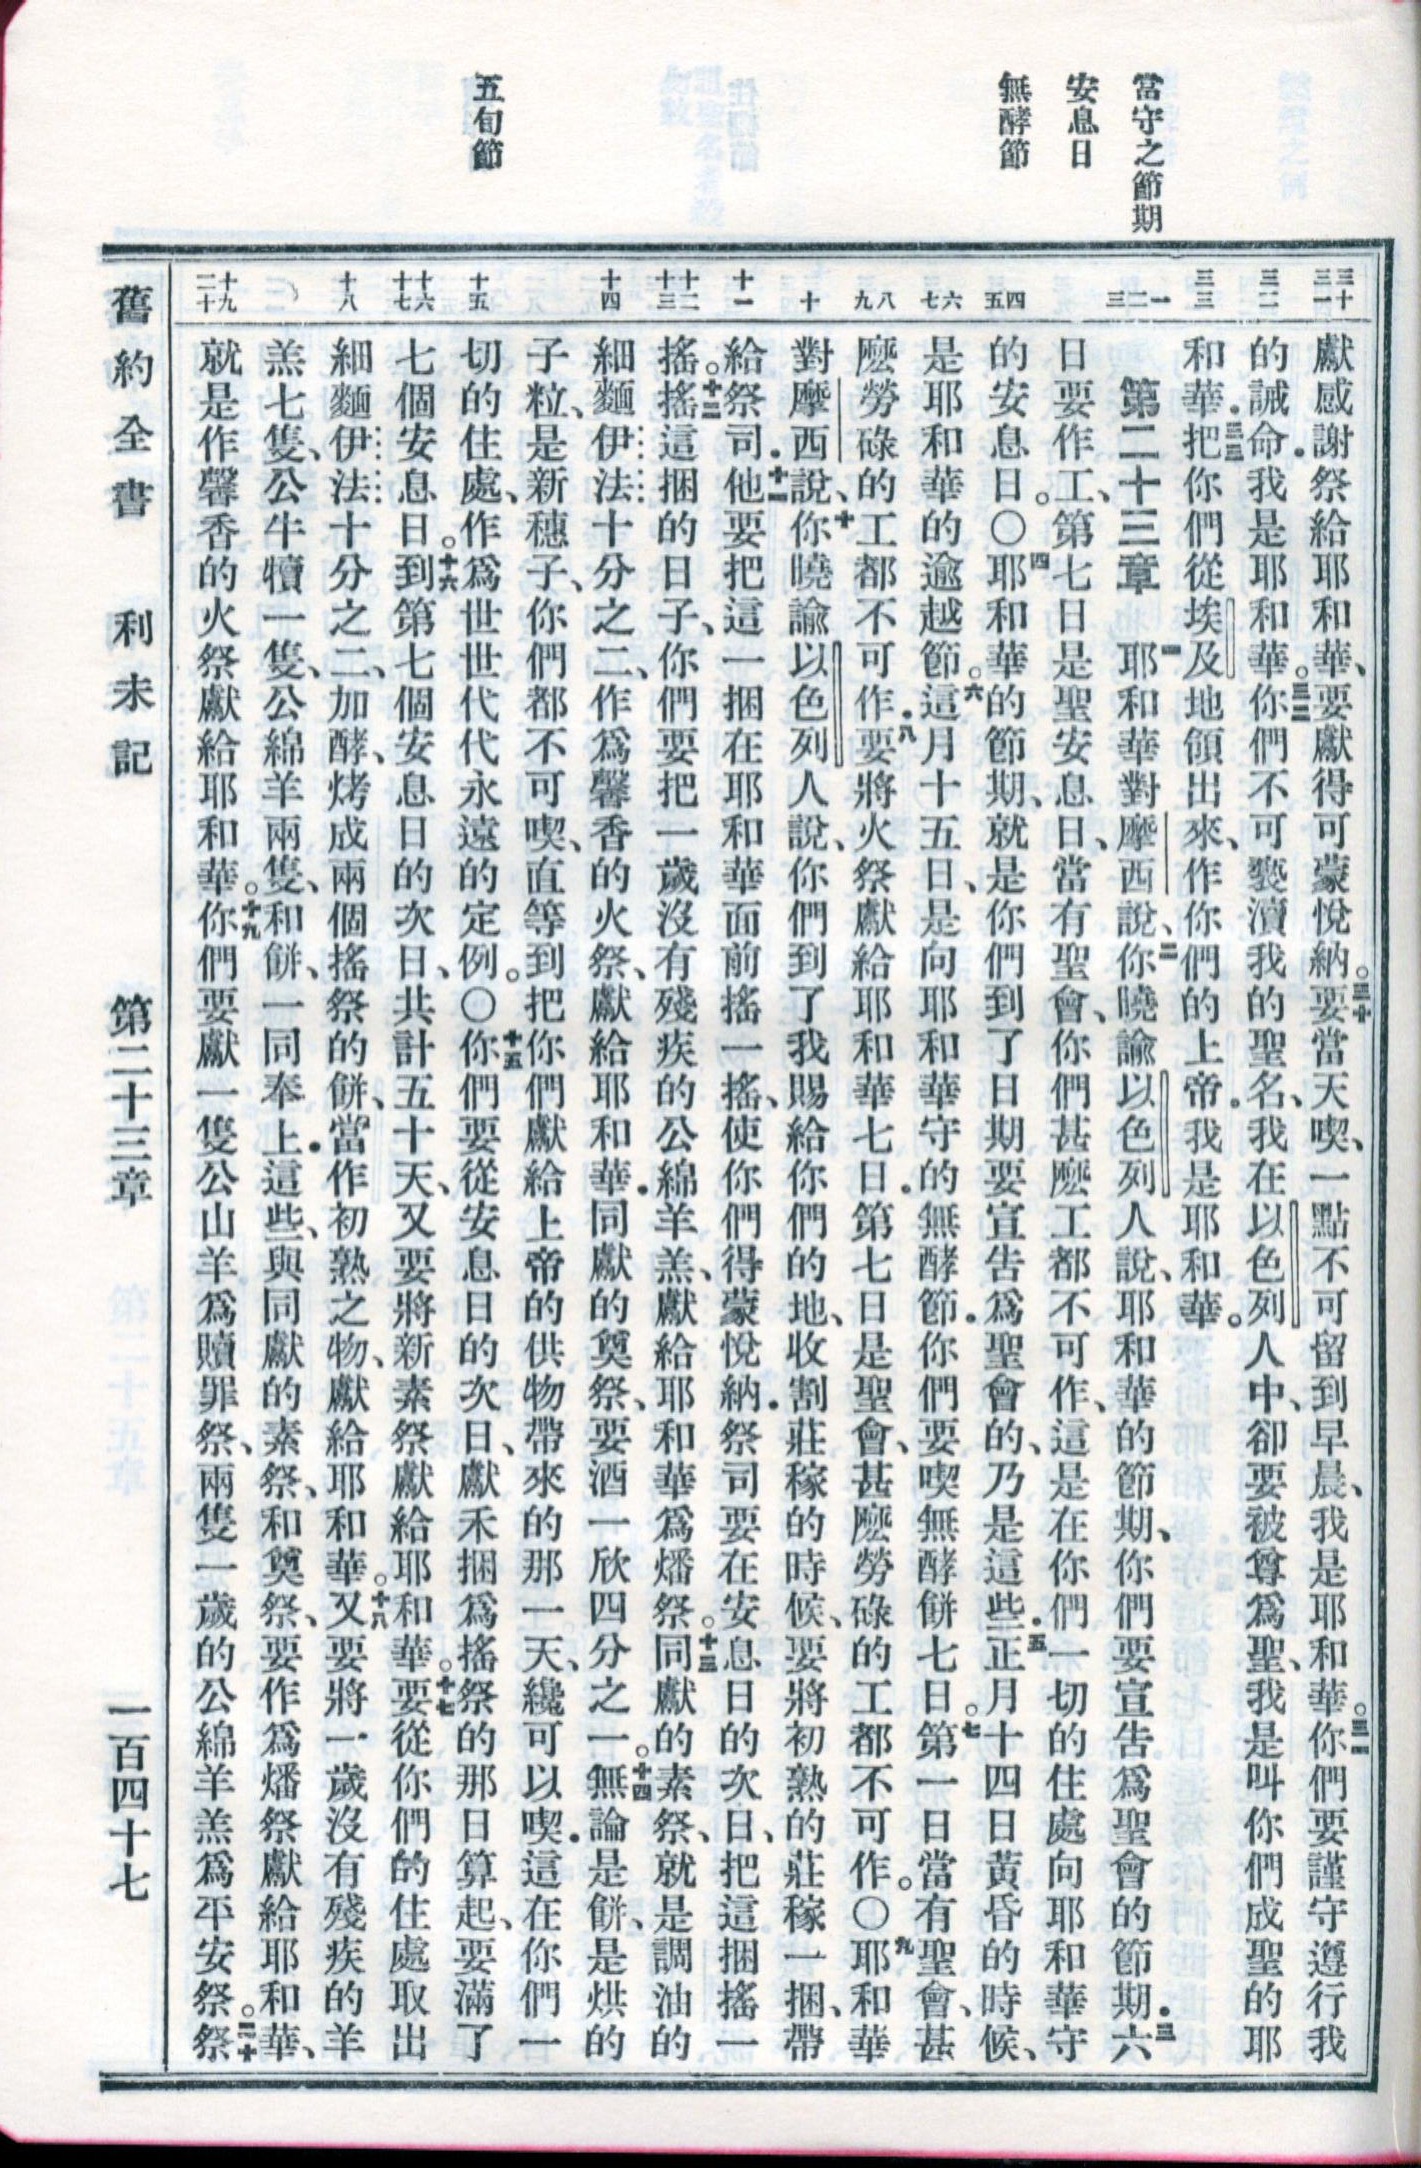 當守之節期
安息日
無酵節
五旬節
三十 三一
三二
三三
一 二 三
四 五
六 七
八 九
十
十一
十二 十三
十四
十五
十六 十七
十八
十九 二十
獻感謝祭給耶和華、要獻得可蒙悅納。三十要當天喫、一點不可留到早晨、我是耶和華。三一你們要謹守遵行我
的誡命.我是耶和華。三二你們不可褻瀆我的聖名、我在以色列人中、卻要被尊爲聖、我是叫你們成聖的耶
和華.三三把你們從埃及地領出來、作你們的上帝.我是耶和華。
第二十三章 一耶和華對摩西說、二你曉諭以色列人說、耶和華的節期、你們要宣告爲聖會的節期.三六
日要作工、第七日是聖安息日、當有聖會、你們甚麽工都不可作、這是在你們一切的住處向耶和華守
的安息日。〇四耶和華的節期、就是你們到了日期要宣告爲聖會的、乃是這些.五正月十四日黃昏的時候、
是耶和華的逾越節。六這月十五日、是向耶和華守的無酵節.你們要喫無酵餅七日。七第一日當有聖會、甚
麽勞碌的工都不可作.八要將火祭獻給耶和華七日.第七日是聖會、甚麽勞碌的工都不可作。〇九耶和華
對摩西說、十你曉諭以色列人說、你們到了我賜給你們的地、收割莊稼的時候、要將初熟的莊稼一捆、帶
給祭司.十一他要把這一捆在耶和華面前搖一搖、使你們得蒙悅納.祭司要在安息日的次日、把這捆搖一
搖。十二搖這捆的日子、你們要把一歲沒有殘疾的公綿羊羔、獻給耶和華爲燔祭。十三同獻的素祭、就是調油的
細麵伊法十分之二、作爲馨香的火祭、獻給耶和華.同獻的奠祭、要酒一欣四分之一。十四無論是餅、是烘的
子粒、是新穗子、你們都不可喫、直等到把你們獻給上帝的供物帶來的那一天、纔可以喫.這在你們一
切的住處、作爲世世代代永遠的定例。〇十五你們要從安息日的次日、獻禾捆爲搖祭的那日算起、要滿了
七個安息日。十六到第七個安息日的次日、共計五十天、又要將新素祭獻給耶和華。十七要從你們的住處取出
細麵伊法十分之二、加酵、烤成兩個搖祭的餅、當作初熟之物、獻給耶和華。十八又要將一歲沒有殘疾的羊
羔七隻、公牛犢一隻、公綿羊兩隻、和餅、一同奉上.這些、與同獻的素祭、和奠祭、要作爲燔祭獻給耶和華、
就是作馨香的火祭獻給耶和華。十九你們要獻一隻公山羊爲贖罪祭、兩隻一歲的公綿羊羔爲平安祭。二十祭
舊約全書 利未記 第二十三章 一百四十七